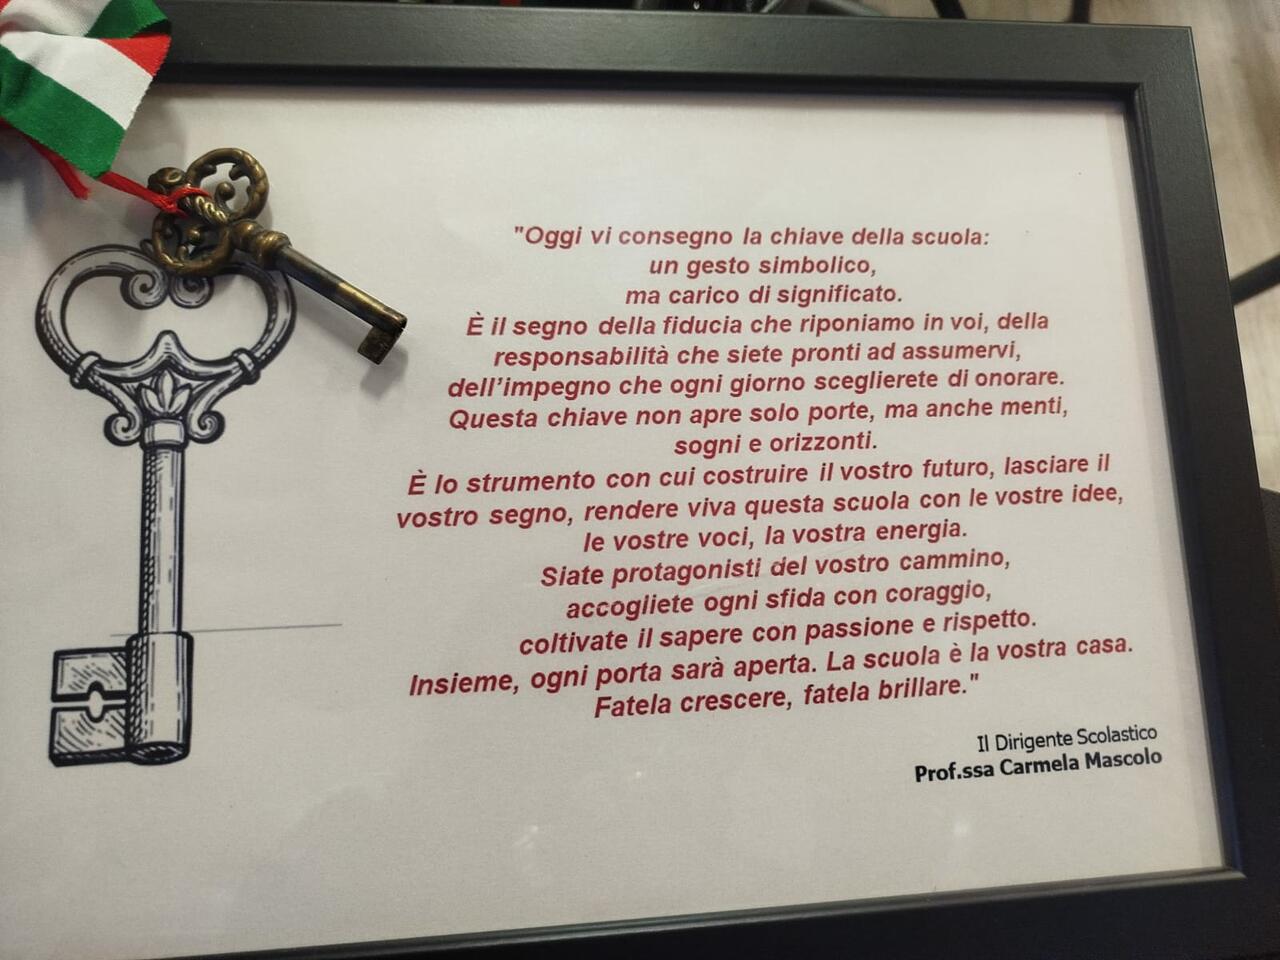 "Oggi vi consegno la chiave della scuola:
un gesto simbolico,
ma carico di significato.
È il segno della fiducia che riponiamo in voi, della
responsabilità che siete pronti ad assumervi,
dell'impegno che ogni giorno sceglierete di onorare.
Questa chiave non apre solo porte, ma anche menti,
sogni e orizzonti.
È lo strumento con cui costruire il vostro futuro, lasciare il
vostro segno, rendere viva questa scuola con le vostre idee,
le vostre voci, la vostra energia.
Siate protagonisti del vostro cammino,
accogliete ogni sfida con coraggio,
coltivate il sapere con passione e rispetto.
Insieme, ogni porta sarà aperta. La scuola è la vostra casa.
Fatela crescere, fatela brillare."
Il Dirigente Scolastico
Prof.ssa Carmela Mascolo